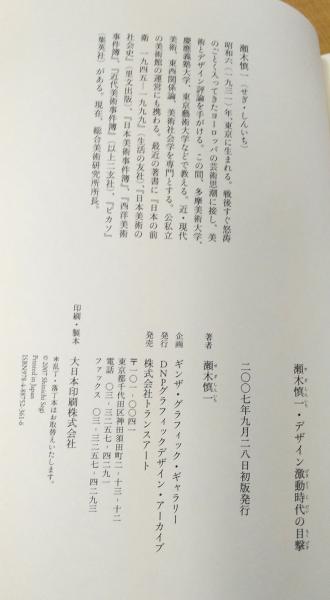 瀬木慎一(せぎ・しんいち)
昭和六(一九三一)年、東京に生まれる。戦後すぐ怒涛
のごとく入ってきたヨーロッパの芸術思潮に接し、美
術とデザイン評論を手がける。この間、多摩美術大学、
慶應義塾大学、東京藝術大学などで教える。近・現代
美術、東西関係論、美術社会学を専門とする。公私立
の美術館の運営にも携わる。最近の著書に『日本の前
衛 一九四五―一九九九』(生活の友社)、『日本美術の
社会史』(里文出版)、『日本美術事件簿』、『西洋美術の
事件簿』、『近代美術事件簿』(以上二玄社)、『ピカソ』
(集英社)がある。現在、総合美術研究所所長。
瀬木慎一・デザイン激動時代の目撃
二〇〇七年九月二八日初版発行
著者 瀬木慎一
企画 ギンザ・グラフィック・ギャラリー
発行 DNPグラフィックデザイン・アーカイブ
発売 株式会社トランスアート
〒一〇一-〇〇四一
東京都千代田区神田須田町二-十三-十二
電話 〇三-三二五七-四二九一
ファックス 〇三-三二五七-四二九三
印刷・製本 大日本印刷株式会社
※乱丁・落丁本はお取替えいたします。
©2007 Shinichi Segi
Printed in Japan
ISBN978-4-88752-361-6